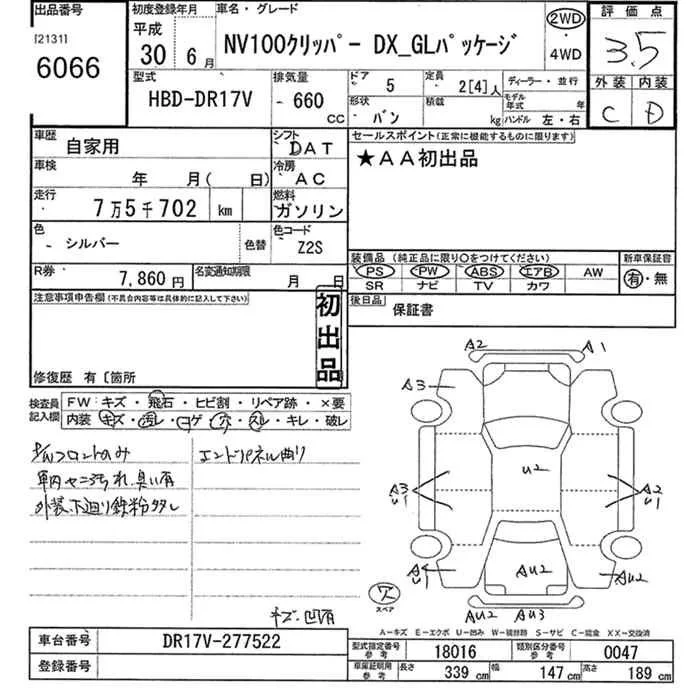 出品番号
[2131]
6066
初度登録年月
平成
30年 6月
車名・グレード
NV100クリッパー DX_GLパッケージ
2WD
・
4WD
評価点
3.5
外装 内装
C D
型式
HBD-DR17V
排気量
660
CC
ドア
5
定員
2[4]人
ディーラー・並行
形状
バン
積載
kg
モデル年式 年
ハンドル 左・右
車歴
自家用
シフト
DAT
セールスポイント(正常に機能するものに限ります)
★AA初出品
車検
年 月( 日)
冷房
AC
走行
7万5千702 km
燃料
ガソリン
色
シルバー
色替
色コード
Z2S
装備品 (純正品に限り○をつけてください)
新車保証書
PS PW ABS エアB AW
SR ナビ TV カワ
有・無
R券
7,860円
名変通知期限
月 日
後日品
保証書
注意事項申告欄(不具合内容等は具体的に記入して下さい)
初出品
修復歴 有〔箇所
検査員記入欄
FW:キズ・飛石・ヒビ割・リペア跡・×要
内装:キズ・汚レ・コゲ・穴・スレ・キレ・破レ
P/Wフロントのみ
エンドパネル曲り
車内ヤニ汚れ、臭い有
外装、下廻り鉄粉多々
キズ・凹有
A2 A1
A3
U2
A3 U1
A2 U1
AU2
AU2
スペア
AU2 AU3
A-キズ E-エクボ U-凹み W-補修跡 S-サビ C-腐食 XX-交換済
車台番号
DR17V-277522
登録番号
型式指定番号
参考
18016
類別区分番号
参考
0047
車庫証明用
参考
長さ 339 cm
幅 147 cm
高さ 189 cm